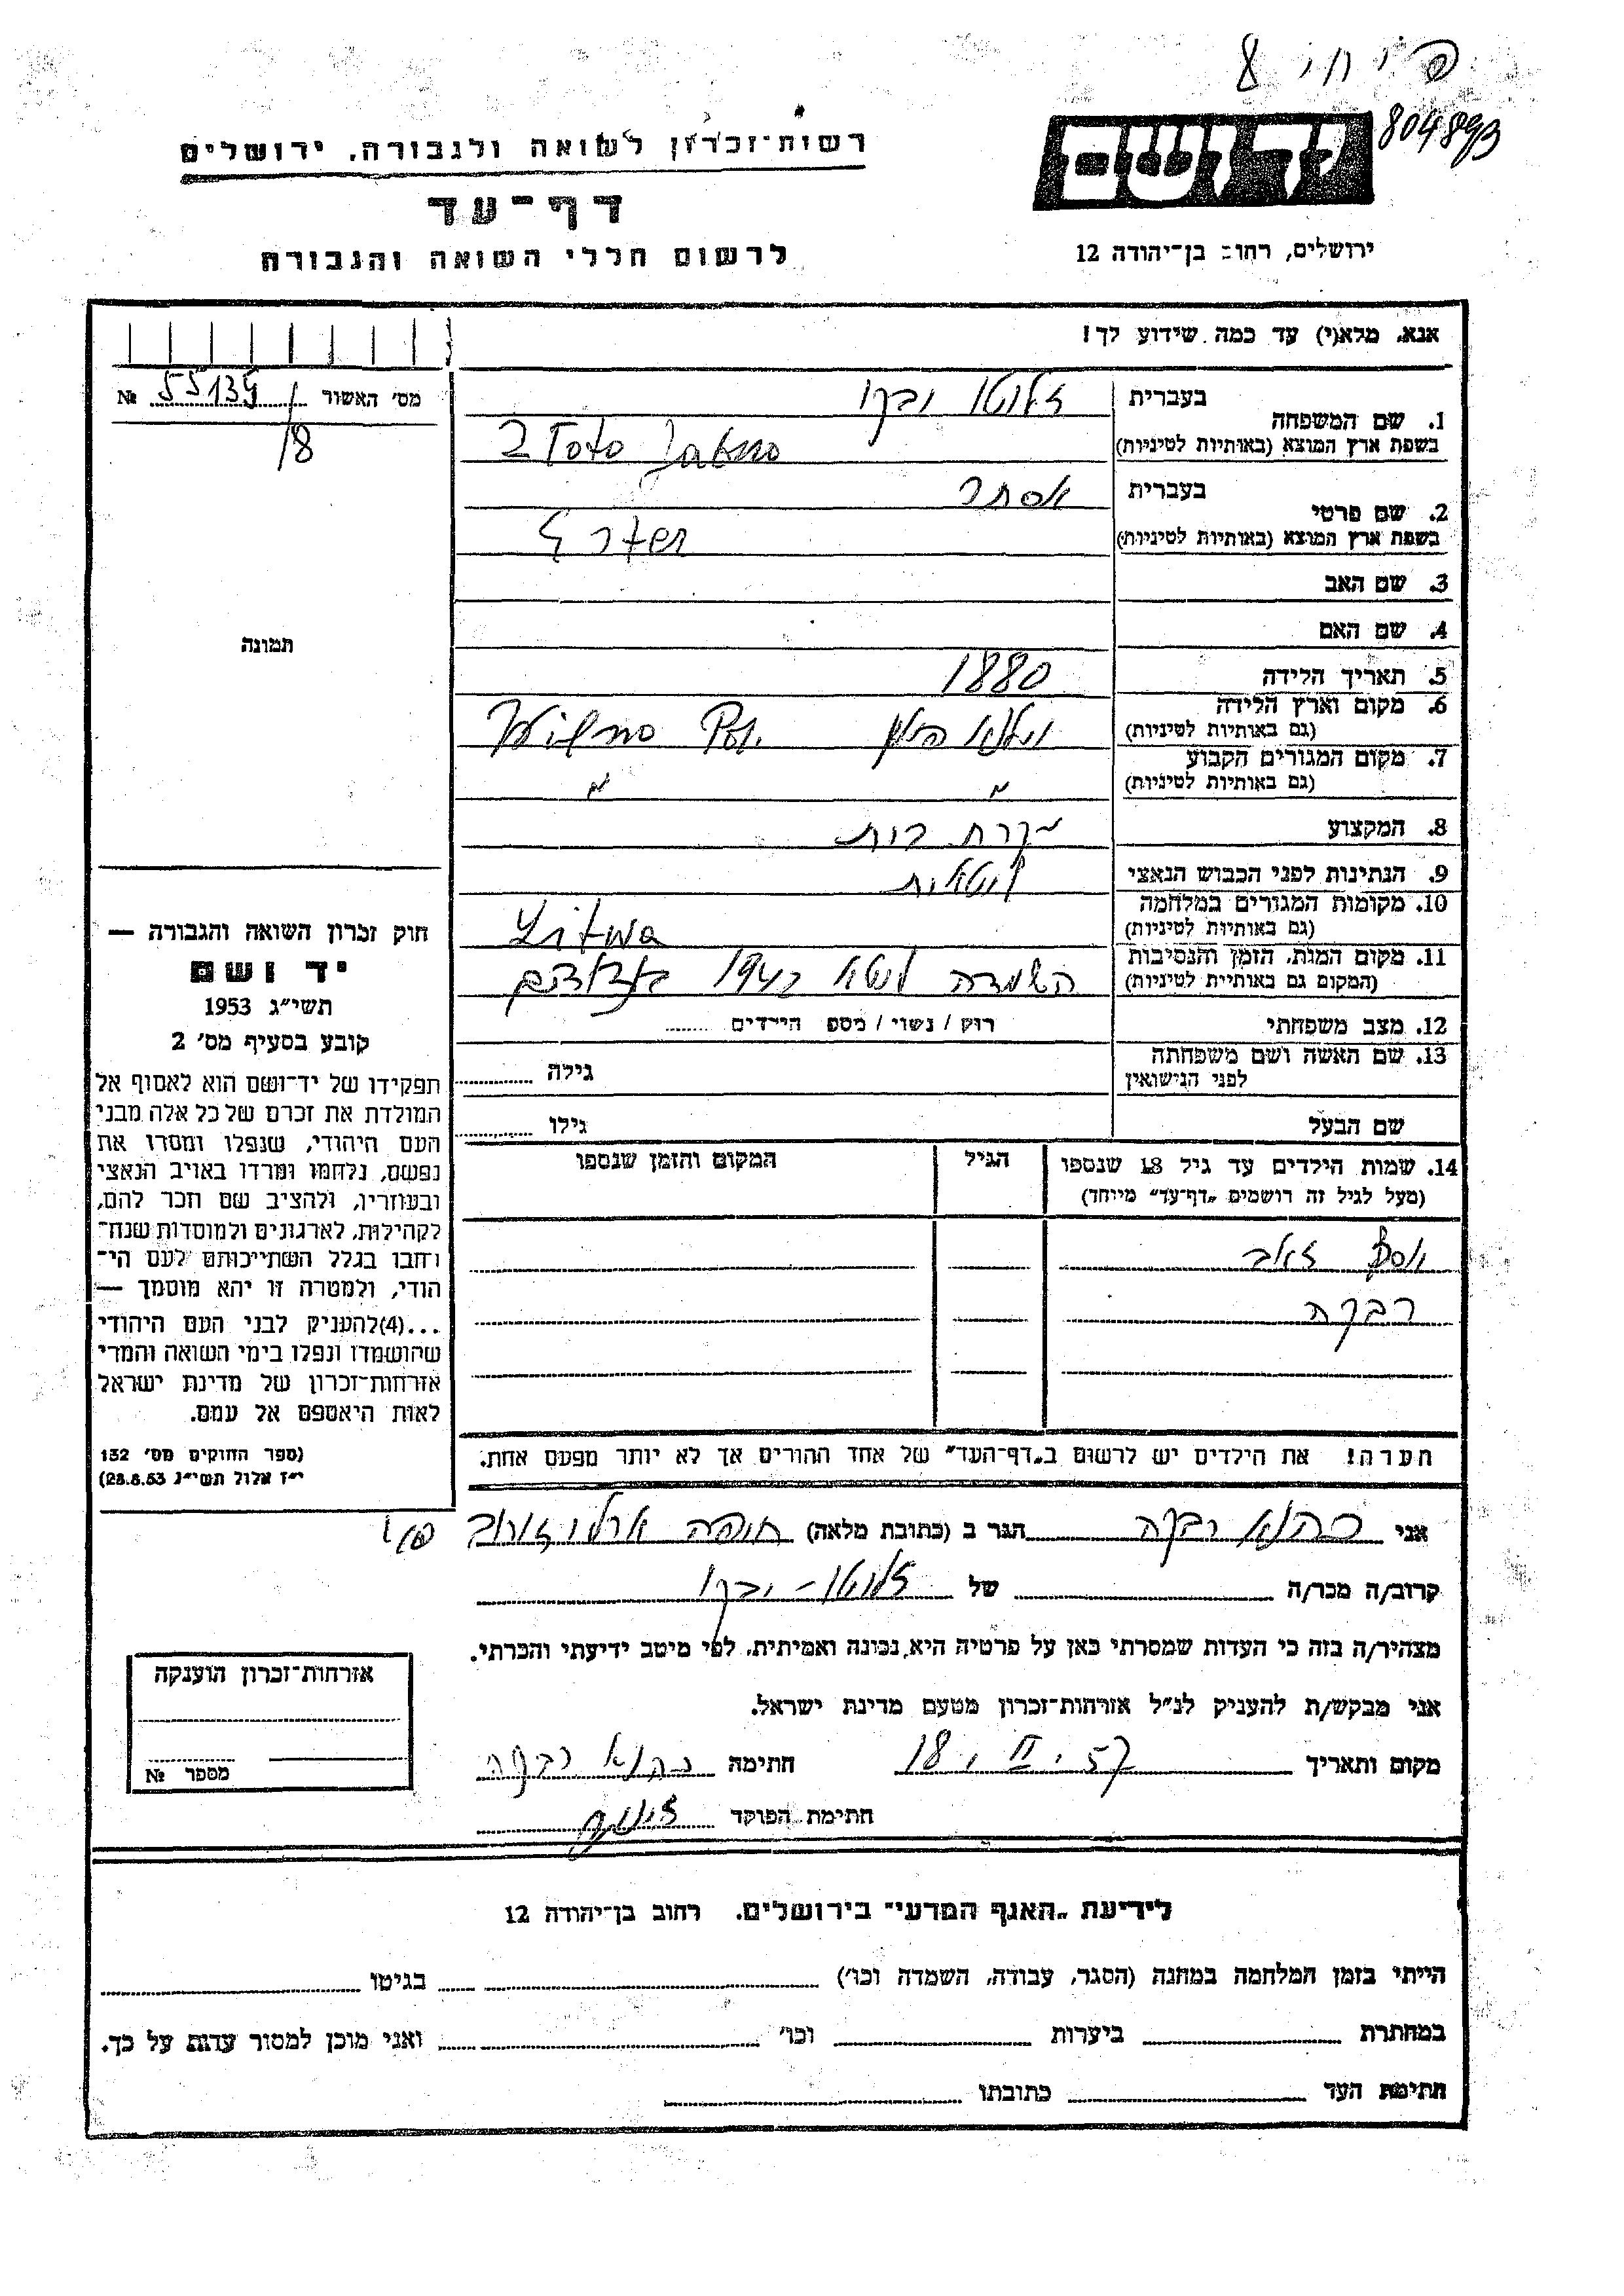 חיפה 8
804893
יד ושם
רשות־זכרון לשואה ולגבורה, ירושלים
דף־עד
לרשום חללי השואה והגבורה
ירושלים, רחוב בן־יהודה 12
אנא, מלא(י) עד כמה שידוע לך!
מס' האשור 55139 №
/8
תמונה
1. שם המשפחה
בעברית זלוטו יבקו
בשפת ארץ המוצא (באותיות לטיניות) Zloto Jabko
2. שם פרטי
בעברית אסתר
בשפת ארץ המוצא (באותיות לטיניות) Ester
3. שם האב
4. שם האם
5. תאריך הלידה 1880
6. מקום וארץ הלידה
(גם באותיות לטיניות) וילנא פולין Wilno Pol.
7. מקום המגורים הקבוע
(גם באותיות לטיניות) " "
8. המקצוע עקרת בית
9. הנתינות לפני הכבוש הנאצי ליטאית
10. מקומות המגורים במלחמה
(גם באותיות לטיניות) Litwa
11. מקום המות, הזמן והנסיבות
(המקום גם באותיות לטיניות) השמדה ליטא 1941
12. מצב משפחתי רוק / נשוי / מספ הילדים
13. שם האשה ושם משפחתה
לפני הנישואין גילה
שם הבעל גילו
14. שמות הילדים עד גיל 18 שנספו הגיל המקום והזמן שנספו
(מעל לגיל זה רושמים „דף־עד" מייחד)
זאב
רבקה
הערה! את הילדים יש לרשום ב„דף־העד" של אחד ההורים אך לא יותר מפעם אחת.
חוק זכרון השואה והגבורה —
יד ושם
תשי"ג 1953
קובע בסעיף מס' 2
תפקידו של יד־ושם הוא לאסוף אל
המולדת את זכרם של כל אלה מבני
העם היהודי, שנפלו ומסרו את
נפשם, נלחמו ומרדו באויב הנאצי
ובעוזריו, ולהציב שם וזכר להם,
לקהילות, לארגונים ולמוסדות שנח־
רחבו בגלל השתייכותם לעם הי־
הודי, ולמטרה זו יהא מוסמך —
...(4)להעניק לבני העם היהודי
שהושמדו ונפלו בימי השואה והמרי
אזרחות־זכרון של מדינת ישראל
לאות היאספם אל עמם.
(ספר החוקים מס' 132
י"ז אלול תשי"ג 28.8.53)
אני כהנא רבקה הגר ב (כתובת מלאה) חיפה ארלוזורוב
קרוב/ה מכר/ה של זלוטו-יבקו
מצהיר/ה בזה כי העדות שמסרתי כאן על פרטיה היא נכונה ואמיתית, לפי מיטב ידיעתי והכרתי.
אני מבקש/ת להעניק לנ"ל אזרחות־זכרון מטעם מדינת ישראל.
מקום ותאריך 18.II.57 חתימה כהנא רבקה
חתימת הפוקד
אזרחות־זכרון הוענקה
מספר №
לידיעת „האגף המדעי" בירושלים. רחוב בן־יהודה 12
הייתי בזמן המלחמה במחנה (הסגר, עבודה, השמדה וכו') בגיטו
במחתרת ביערות וכו' ואני מוכן למסור עדות על כך.
חתימת העד כתובתו